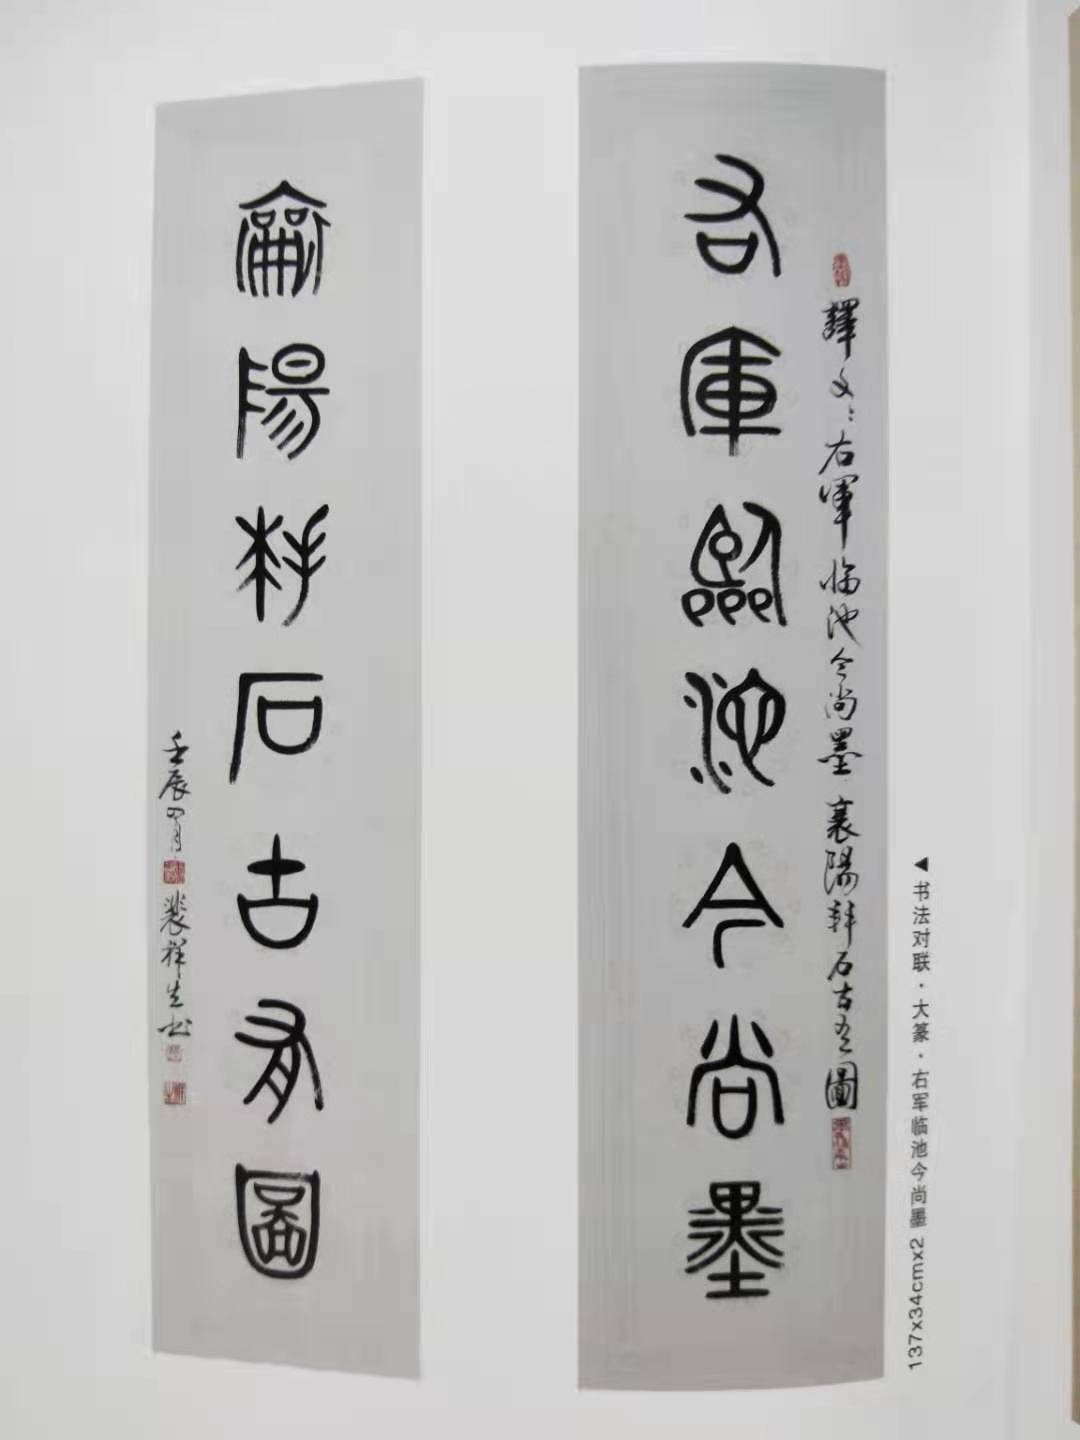 右軍臨池今尚墨
譯文：右軍临池今尚墨 襄陽拜石古有圖
襄陽拜石古有圖
壬辰四月
裴祥生书
▲书法对联·大篆·右军临池今尚墨 137x34cmx2